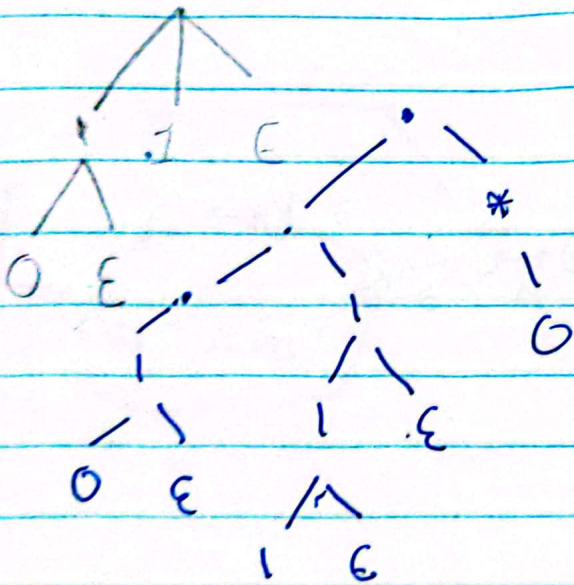 .
| .1 ε
. *
0 ε
.
. |
0
|
| ε
0 ε
1 ε